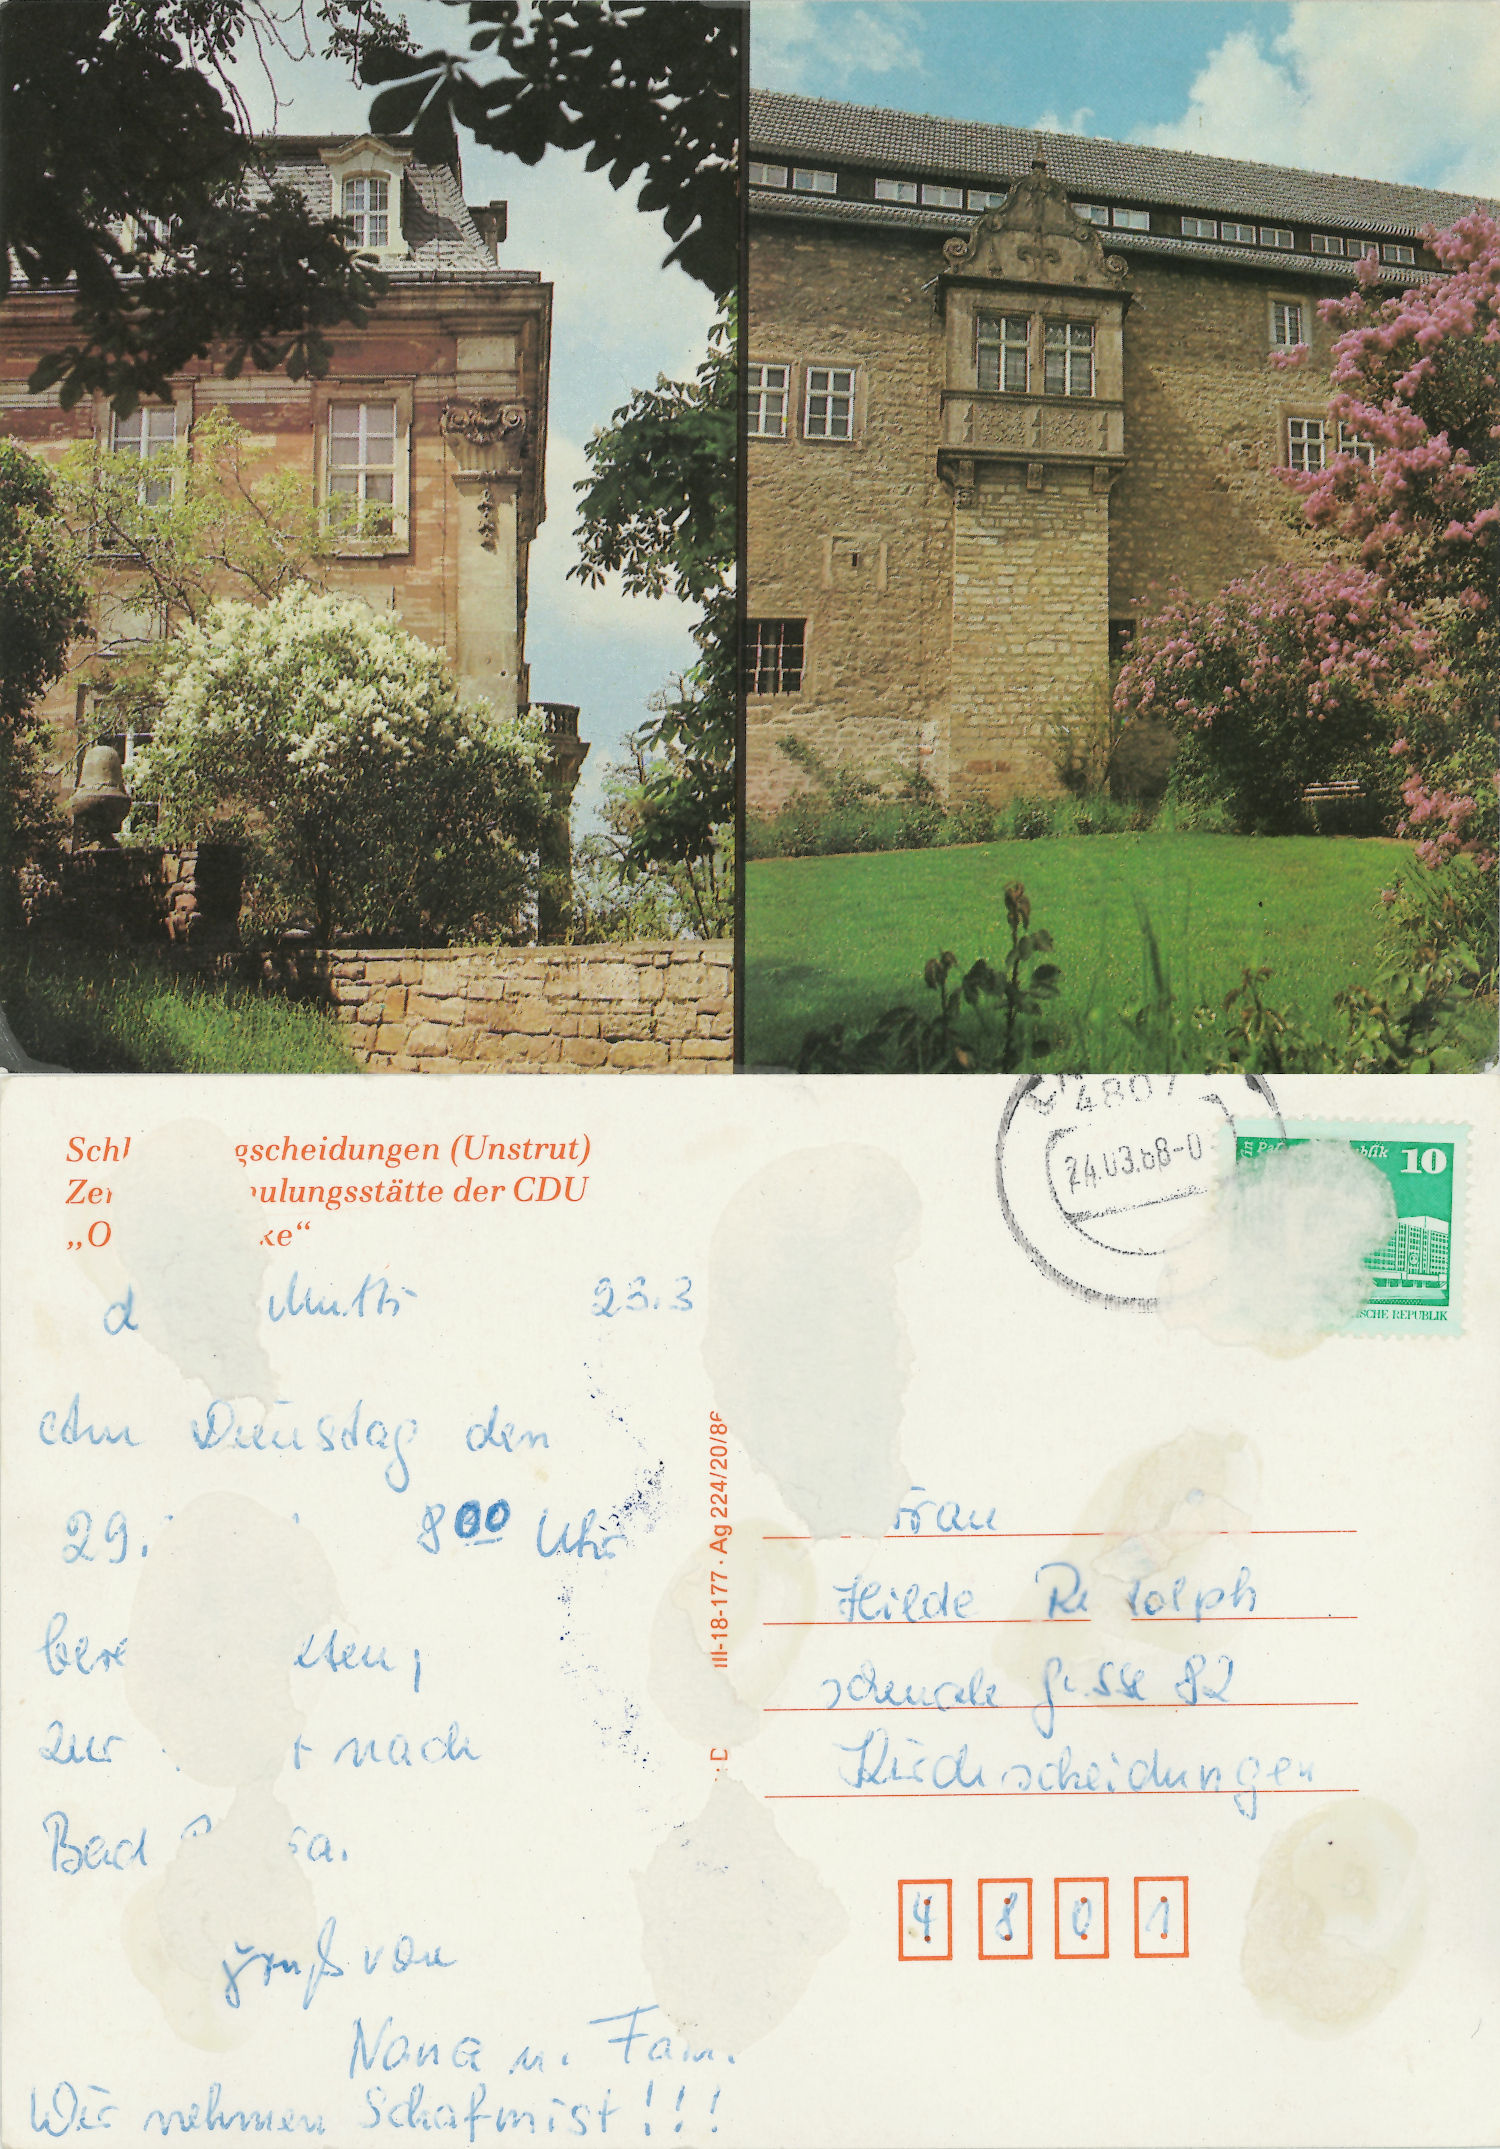 Schl gscheidungen (Unstrut)
Zen ulungsstätte der CDU
„O ke“
d Mutti 23.3
Am Dienstag den
29. 8 00 Uhr
bere tten,
zur t nach
Bad sa.
gruß von
Nana u. Fam.
Wir nehmen Schafmist!!!
III-18-177 · Ag 224/20/86
4801
24.03.88-0
10
SCHE REPUBLIK
Frau
Hilde Ru dolph
schmale gasse 82
Kirchscheidungen
4 8 0 1